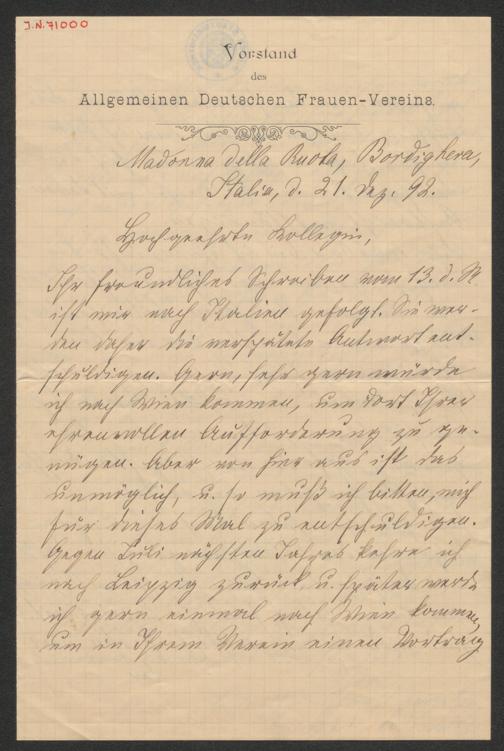 J.N. 71000
Vorstand
des
Allgemeinen Deutschen Frauen-Vereins.
Madonna della Ruota, Bordighera,
Italia, d. 21. Dez. 92.
Hochgeehrte Kollegin,
Ihr freundliches Schreiben vom 13. d. M
ist mir nach Italien gefolgt. Sie wer-
den daher die verspätete Antwort ent-
schuldigen. Gern, sehr gern würde
ich nach Wien kommen, um dort Ihrer
ehrenvollen Aufforderung zu ge-
nügen. Aber von hier aus ist das
unmöglich, u. so muß ich bitten, mich
für dieses Mal zu entschuldigen.
Gegen Juli nächsten Jahres kehre ich
nach Leipzig zurück u. später werde
ich gern einmal nach Wien kommen,
um in Ihrem Verein einen Vortrag